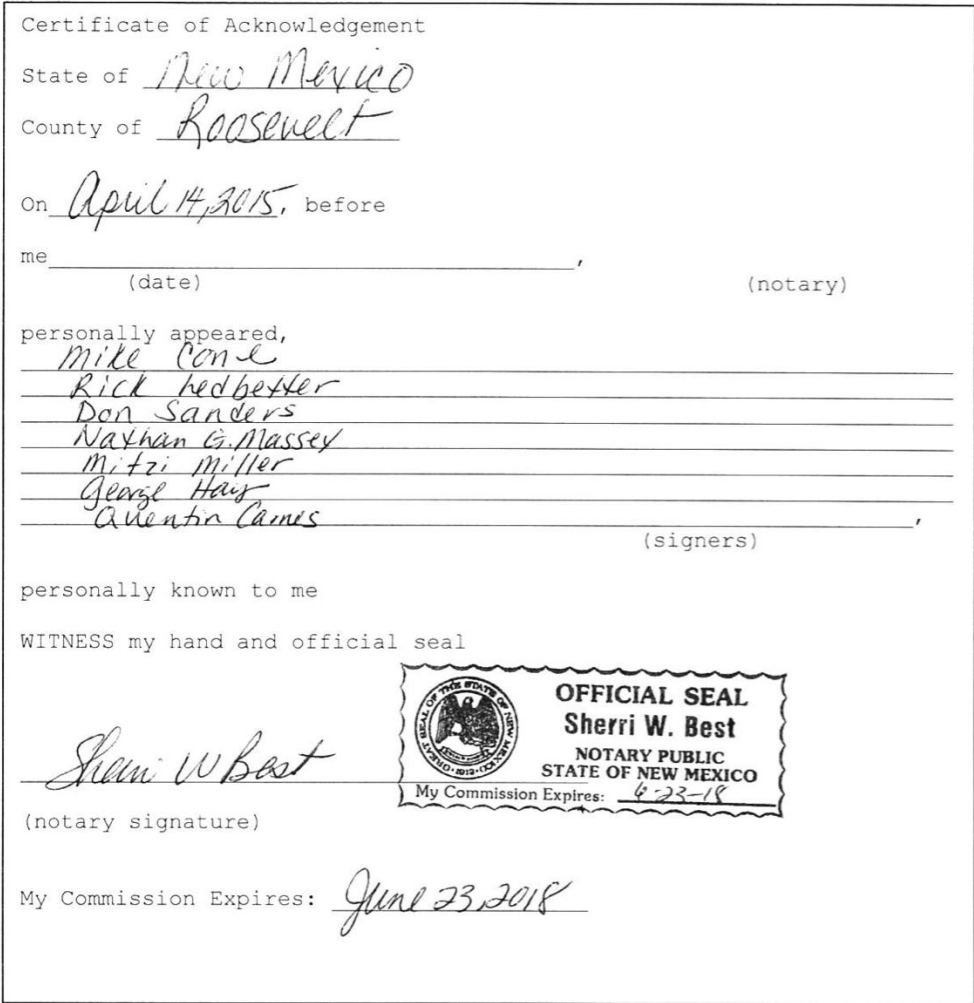 Certificate of Acknowledgement
State of New Mexico
County of Roosevelt
On April 14, 2015, before
me ,
(date) (notary)
personally appeared,
Mike Cone
Rick Ledbetter
Don Sanders
Nathan G. Massey
Mitzi Miller
George Hay
Quentin Carnes
,
(signers)
personally known to me
WITNESS my hand and official seal
GREAT SEAL OF THE STATE OF NEW MEXICO
1912
OFFICIAL SEAL
Sherri W. Best
NOTARY PUBLIC
STATE OF NEW MEXICO
My Commission Expires: 6-23-18
Sherri W Best
(notary signature)
My Commission Expires: June 23, 2018